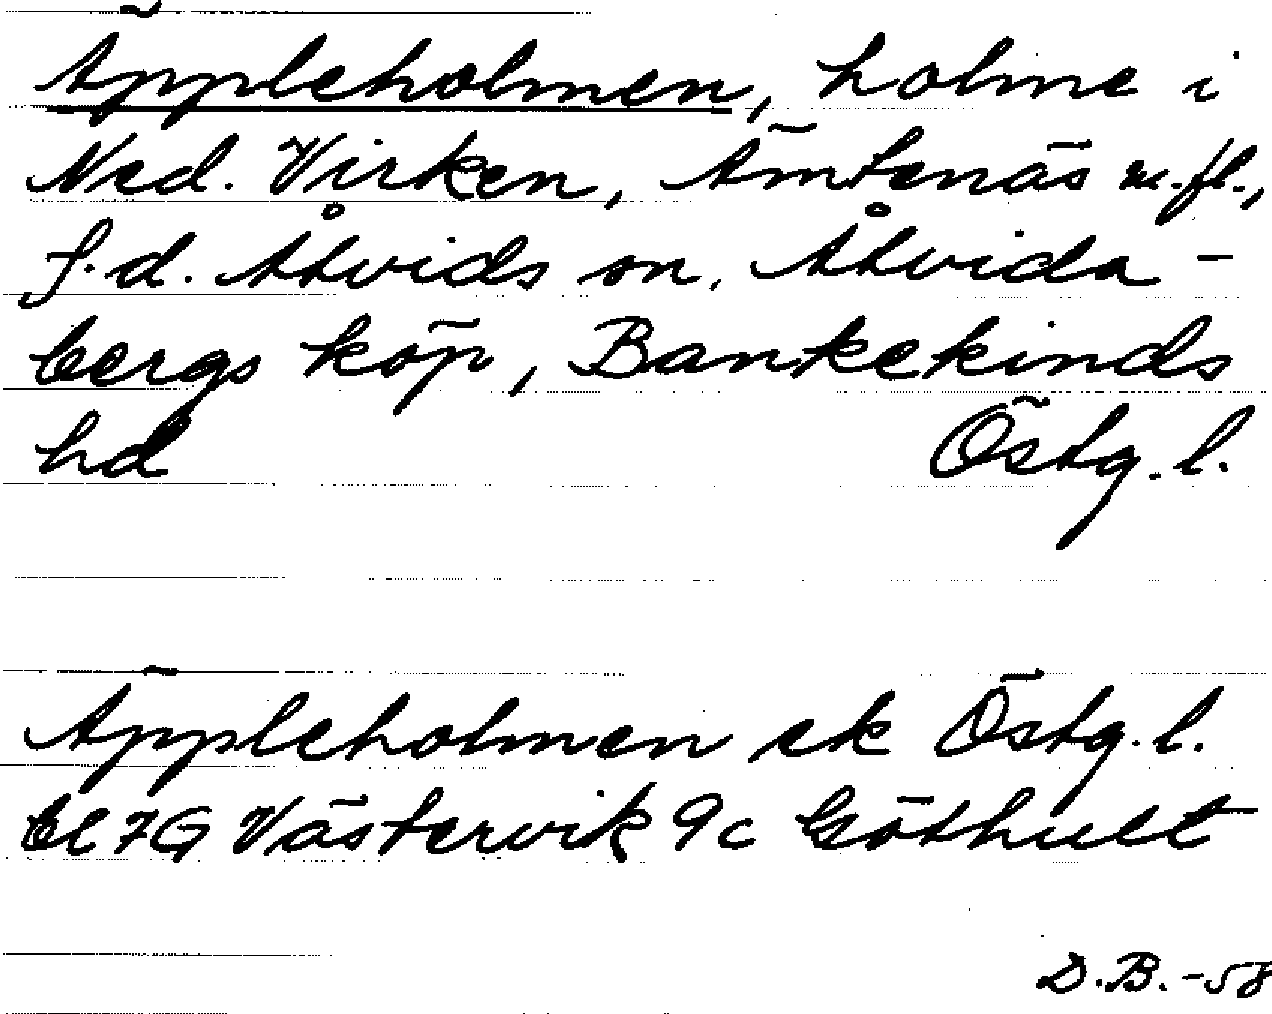 Äppleholmen, holme i
Ned. Virken, Ämtenäs m.fl.,
f.d. Åtvids sn, Åtvida-
bergs köp, Bankekinds
hd Östg. l.
Äppleholmen ek Östg. l.
bl 7G Västervik 9c Göthult
D.B. -58